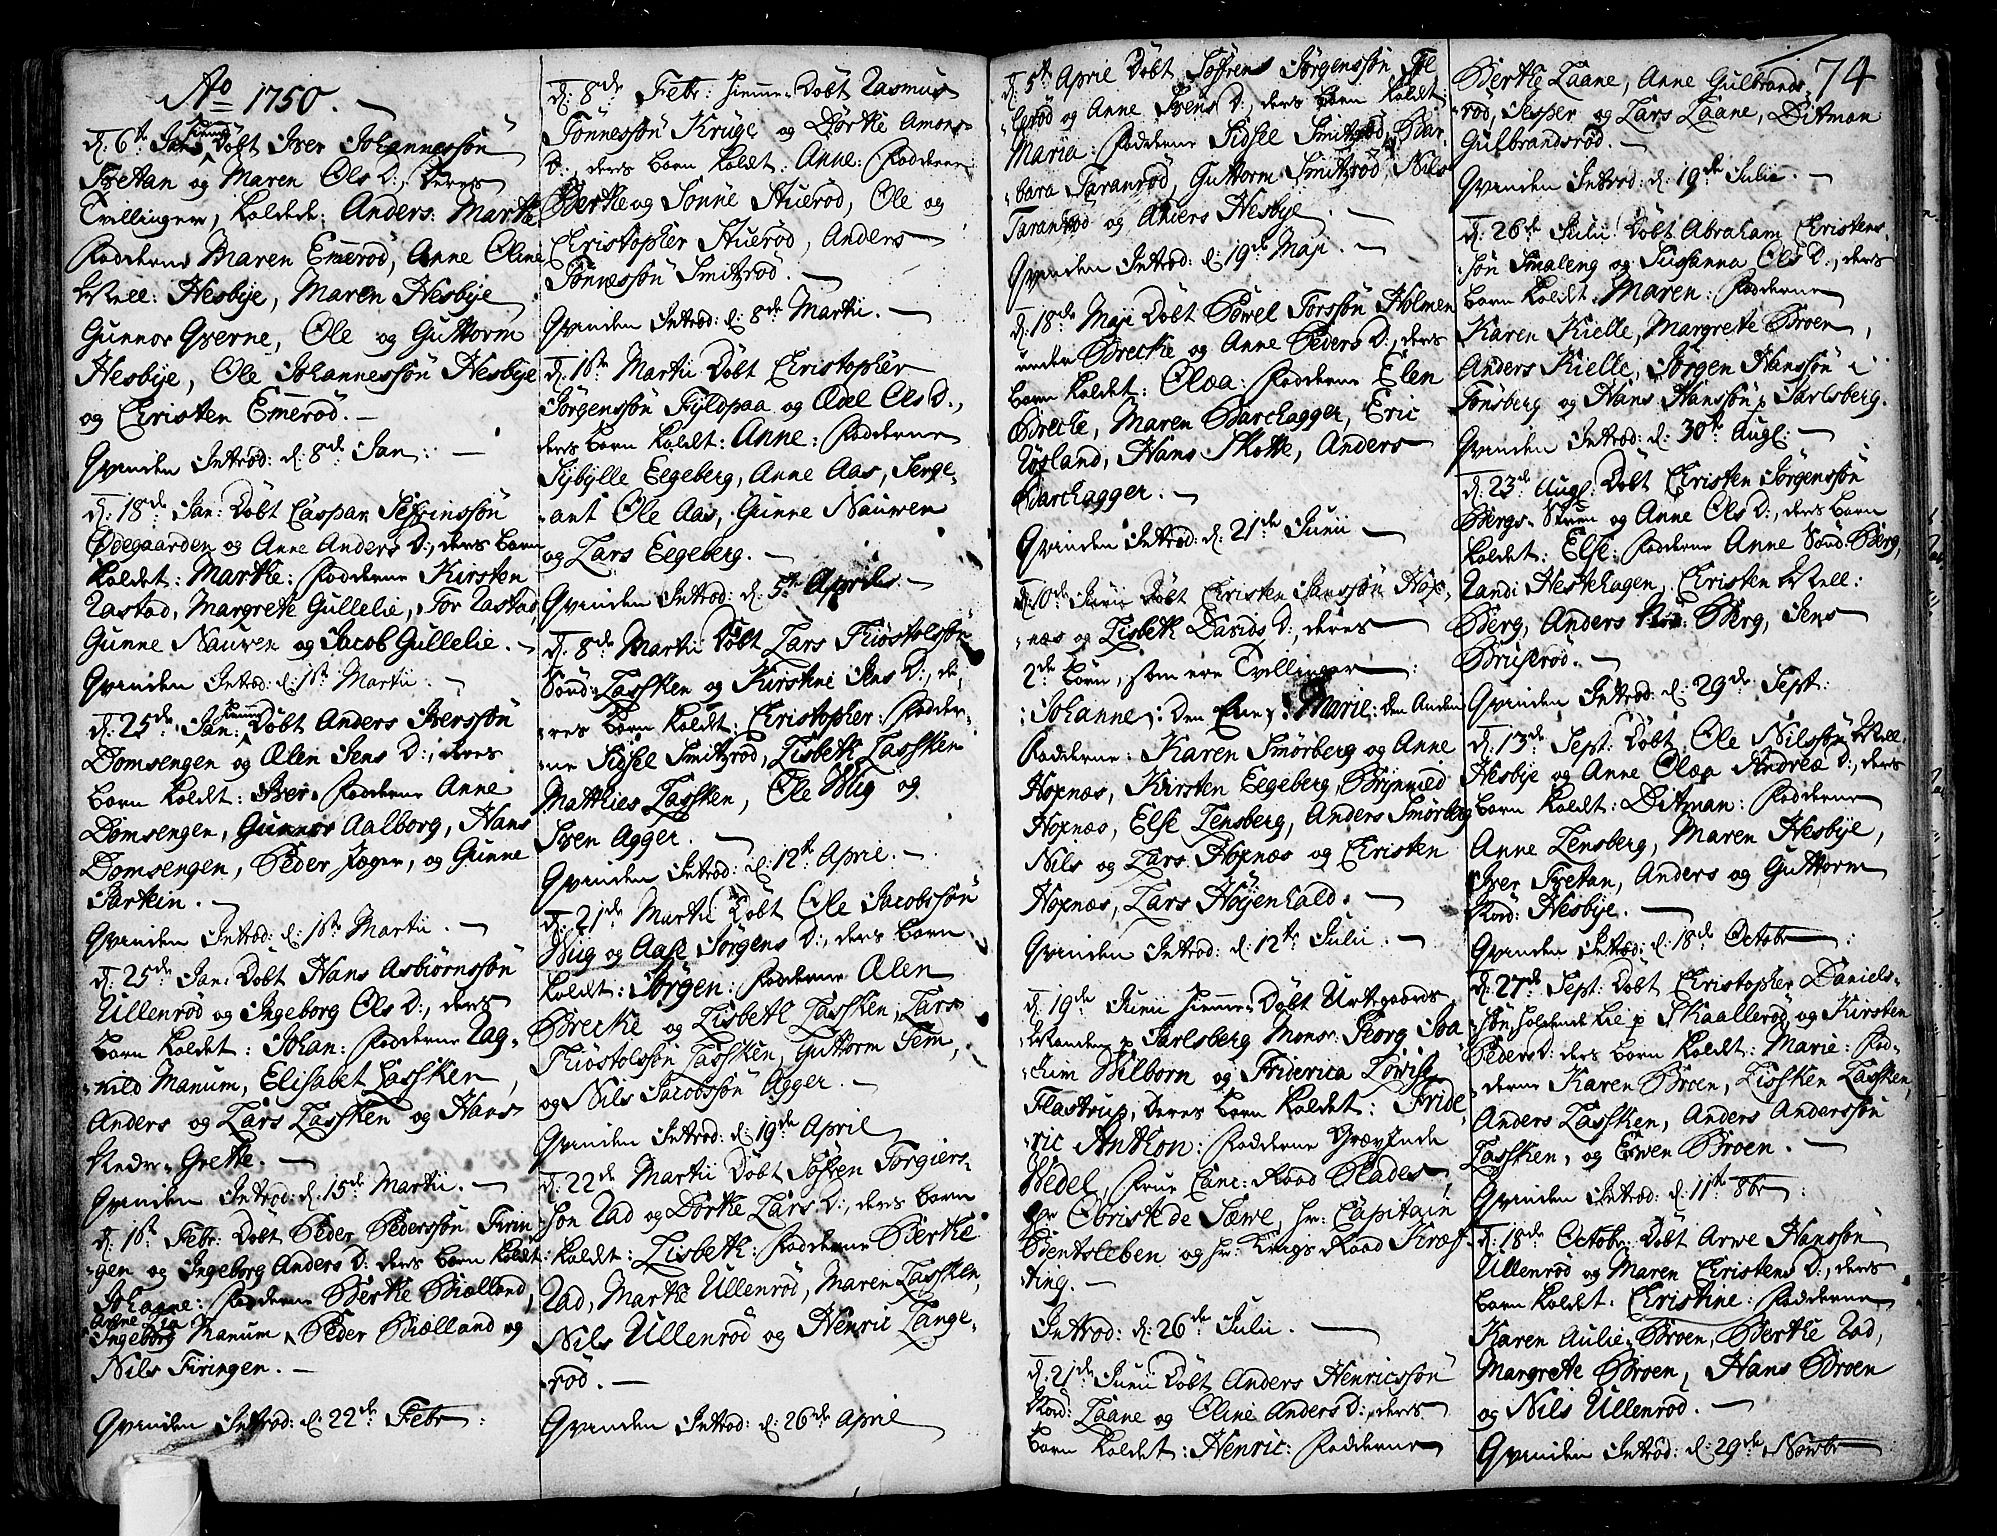 Ao 1750.
d: 6te Jan: hiemme Døbt Iver Johannessøn
Tretan og Maren Ols D:, deres
Tvillinger, kaldede: Anders: Marthe
Fadderne Maren Emerød, Anne Oline
Hesbije, Maren Hesbije
Gunnor Qverne, Ole og Guttorm
Hesbije, Ole Johannessøn Hesbije
og Christen Emerød.
Qvinden Introd: d: 8de Jan:
d: 18de Jan: Døbt Caspar Sefrinssøn
Ødegaarden og Anne Anders D:, deres barn
kaldet: Marthe: Fadderne Kirsten
Rastad, Margrete Gullelie, Tor Rastad,
Gunne Nauren og Jacob Gullelie.
Qvinden Introd: d: 1ste Martii.
d: 25de Jan: hiemme Døbt Anders Iverssøn
Domsengen og Ælen Jens D:, deres
barn kaldt: Iver: Fadderne Anne
Domsengen, Gunnor Aalborg, Hans
Domsengen, Peder Jæger, og Gunne
Partein.
Qvinden Introd: d: 1ste Martii.
d: 25de Jan: Døbt Hans Asbiørnssøn
Ullenrød og Ingeborg Ols D:, deres
barn kaldet: Johan: Fadderne Rag-
nild Manum, Elisabet Lassken,
Anders og Lars Lassken og Hans
Grette.
Qvinden Introd: d: 15de Martii.
d: 1ste Febr: Døbt Peder Pederssøn Firin
gen og Ingeborg Anders D: deres barn kaldt:
Johanne: Fadderne Berthe Biælland,
Anne Lia
Ingeborg Manum, Peder Biælland og
Nils Firingen.
Qvinden Introd: d: 22de Febr:
d: 8de Febr: hiemme-Døbt Rasmus
Tønnessøn Kruge og Dørthe Amons-
D:, deres barn kaldt: Anne: Fadderne
Berthe og Sønne Stuerød, Ole og
Christopher Stuerød, Anders
Tønnessøn Smitzrød.
Qvinden Introd: d: 8de Martii.
d: 1ste Martii Døbt Christopher
Jørgenssøn Fyldpaa og Ædel Ols D:,
deres barn kaldt: Anne: Fadderne
Sybylle Eegeberg, Anne Aas, Serge-
ant Ole Aas, Gunne Nauren
og Lars Eegeberg.
Qvinden Introd: d: 5te Aprilis.
d: 8de Martii Døbt Lars Tiøstolssøn
Sønd: Lassken og Kirstine Jens D:, de-
res barn kaldt: Christopher: Fadder-
ne Sidsel Smitzrød, Lisbeth Lassken
Matthies Lassken, Ole Wiig og
Iven Agger.
Qvinden Introd: d: 12te April.
d: 21de Martii Døbt Ole Jacobssøn
Wiig og Aase Jørgens D:, deres barn
kaldt: Jørgen: Fadderne Ælen
Brecke og Lisbeth Lassken, Lars
Tiøstolssøn Lassken, Guttorm Sem,
og Nils Jacobssøn Agger.
Qvinden Introd: d: 19de April
d: 22de Martii Døbt Søfren Torgiers-
søn Rad og Dorthe Lars D:, deres barn
kaldt: Lisbeth: Fadderne Berthe
Rad, Marthe Ullenrød, Maren Lassken,
Nils Ullenrød og Henric Lange-
rød.
Qvinden Introd: d: 26de April
d: 5te April Døbt Søffrens Jørgenssøn
og Anne Ivens D:, deres barn kaldt:
Maria: Fadderne Sidsel Smitzrød, Bar-
bara Taranrød, Guttorm Smitzrød, Nils
Taranrød og Anders Hesbije.
Qvinden Introd: d: 19de Maji.
d: 18de Maji Døbt Powel Torssøn Holmen
under Brecke og Anne Peders D:, deres
barn kaldet: Olæa: Fadderne Elen
Brecke, Maren Barchagger, Eric
Røsland, Hans Skotte, Anders
Barchagger.
Qvinden Introd: d: 21de Junii
d: 10de Junii Døbt Christen Janssøn Hox-
næs og Lisbeth Davids D:, deres
2de børn, som ere Tvillinger
Johanne, den Ene, Marie, den Anden
Fadderne: Karen Smørberg og Anne
Hoxnæs, Kirsten Eegeberg, Brynnild
Hoxnæs, Else Lensberg, Anders Smørberg
Nils og Lars Hoxnæs og Christen
Hoxnæs, Lars Høijenhald.
Qvinden Introd: d: 12te Julii.
d: 19de Junii hiemme-Døbt Urtegaards
Manden p Jarlsberg Mons: Georg Joa
chim Wilborn og Friderica Lowise
Flastrup, deres barn kaldet: Fride-
ric Anthon: Fadderne Grævinde
Wedel, Frue Canc: Raad Blades,
Hr Obriste de Sæwe, hr: Capitain
Bentsleben og hr: Krigs Raad Kræf-
ting.
Introd: d: 26de Julii.
d: 21de Junii Døbt Anders Henricssøn
Nord: Laane og Oline Anders D:, deres
barn kaldet: Henric: Fadderne
74
Berthe Laane, Anne Gulbrands-
rød, Jesper og Lars Laane, Ditman
Gulbrandsrød.
Qvinden Introd: d: 19de Julii.
d: 26de Julii Døbt Abraham Christens-
søn Smaleng og Susanna Ols D:, deres
barn kaldt: Maren: Fadderne
Karen Kielle, Margrete Broen,
Anders Kielle, Jørgen Hanssøn i
Tønsberg og Hans Hanssøn p Jarlsberg.
Qvinden Introd: d: 30te Aug:
d: 23de Aug: Døbt Christen Jørgenssøn
Bergs-Strøm og Anne Ols D:, deres barn
kaldet: Else: Fadderne Anne Sønd: Berg,
Randi Hestehagen, Christen
Berg, Anders Berg, Jens
Bruserød.
Qvinden Introd: d: 29de Sept:
d: 13de Sept: Døbt Ole Nilssøn
Hesbije og Anne Olæa Andreæ D:, deres
barn kaldt: Ditman: Fadderne
Anne Lensberg, Maren Hesbije,
Iver Tretan, Anders og Guttorm
Nord: Hesbije.
Qvinden Introd: d: 18de Octobr
d: 27de Sept: Døbt Christopher Daniels-
søn, p Skaallerød og Kirsten
Peders D: deres barn kaldt: Marie: Fad-
derne Karen Broen, Lissken Lassken,
Anders Lassken, Anders Anderssøn
Lassken, og Erwen Broen.
Qvinden Introd: d: 11te 8br:
d: 18de Octobr: Døbt Arwe Hanssøn
Ullenrød og Maren Christens D:, deres
barn kaldt: Christine: Fadderne
Karen Aulie, Broen, Berthe Rad,
Margrete Broen, Hans Broen
og Nils Ullenrød.
Qvinden Introd: d: 29de Novbr